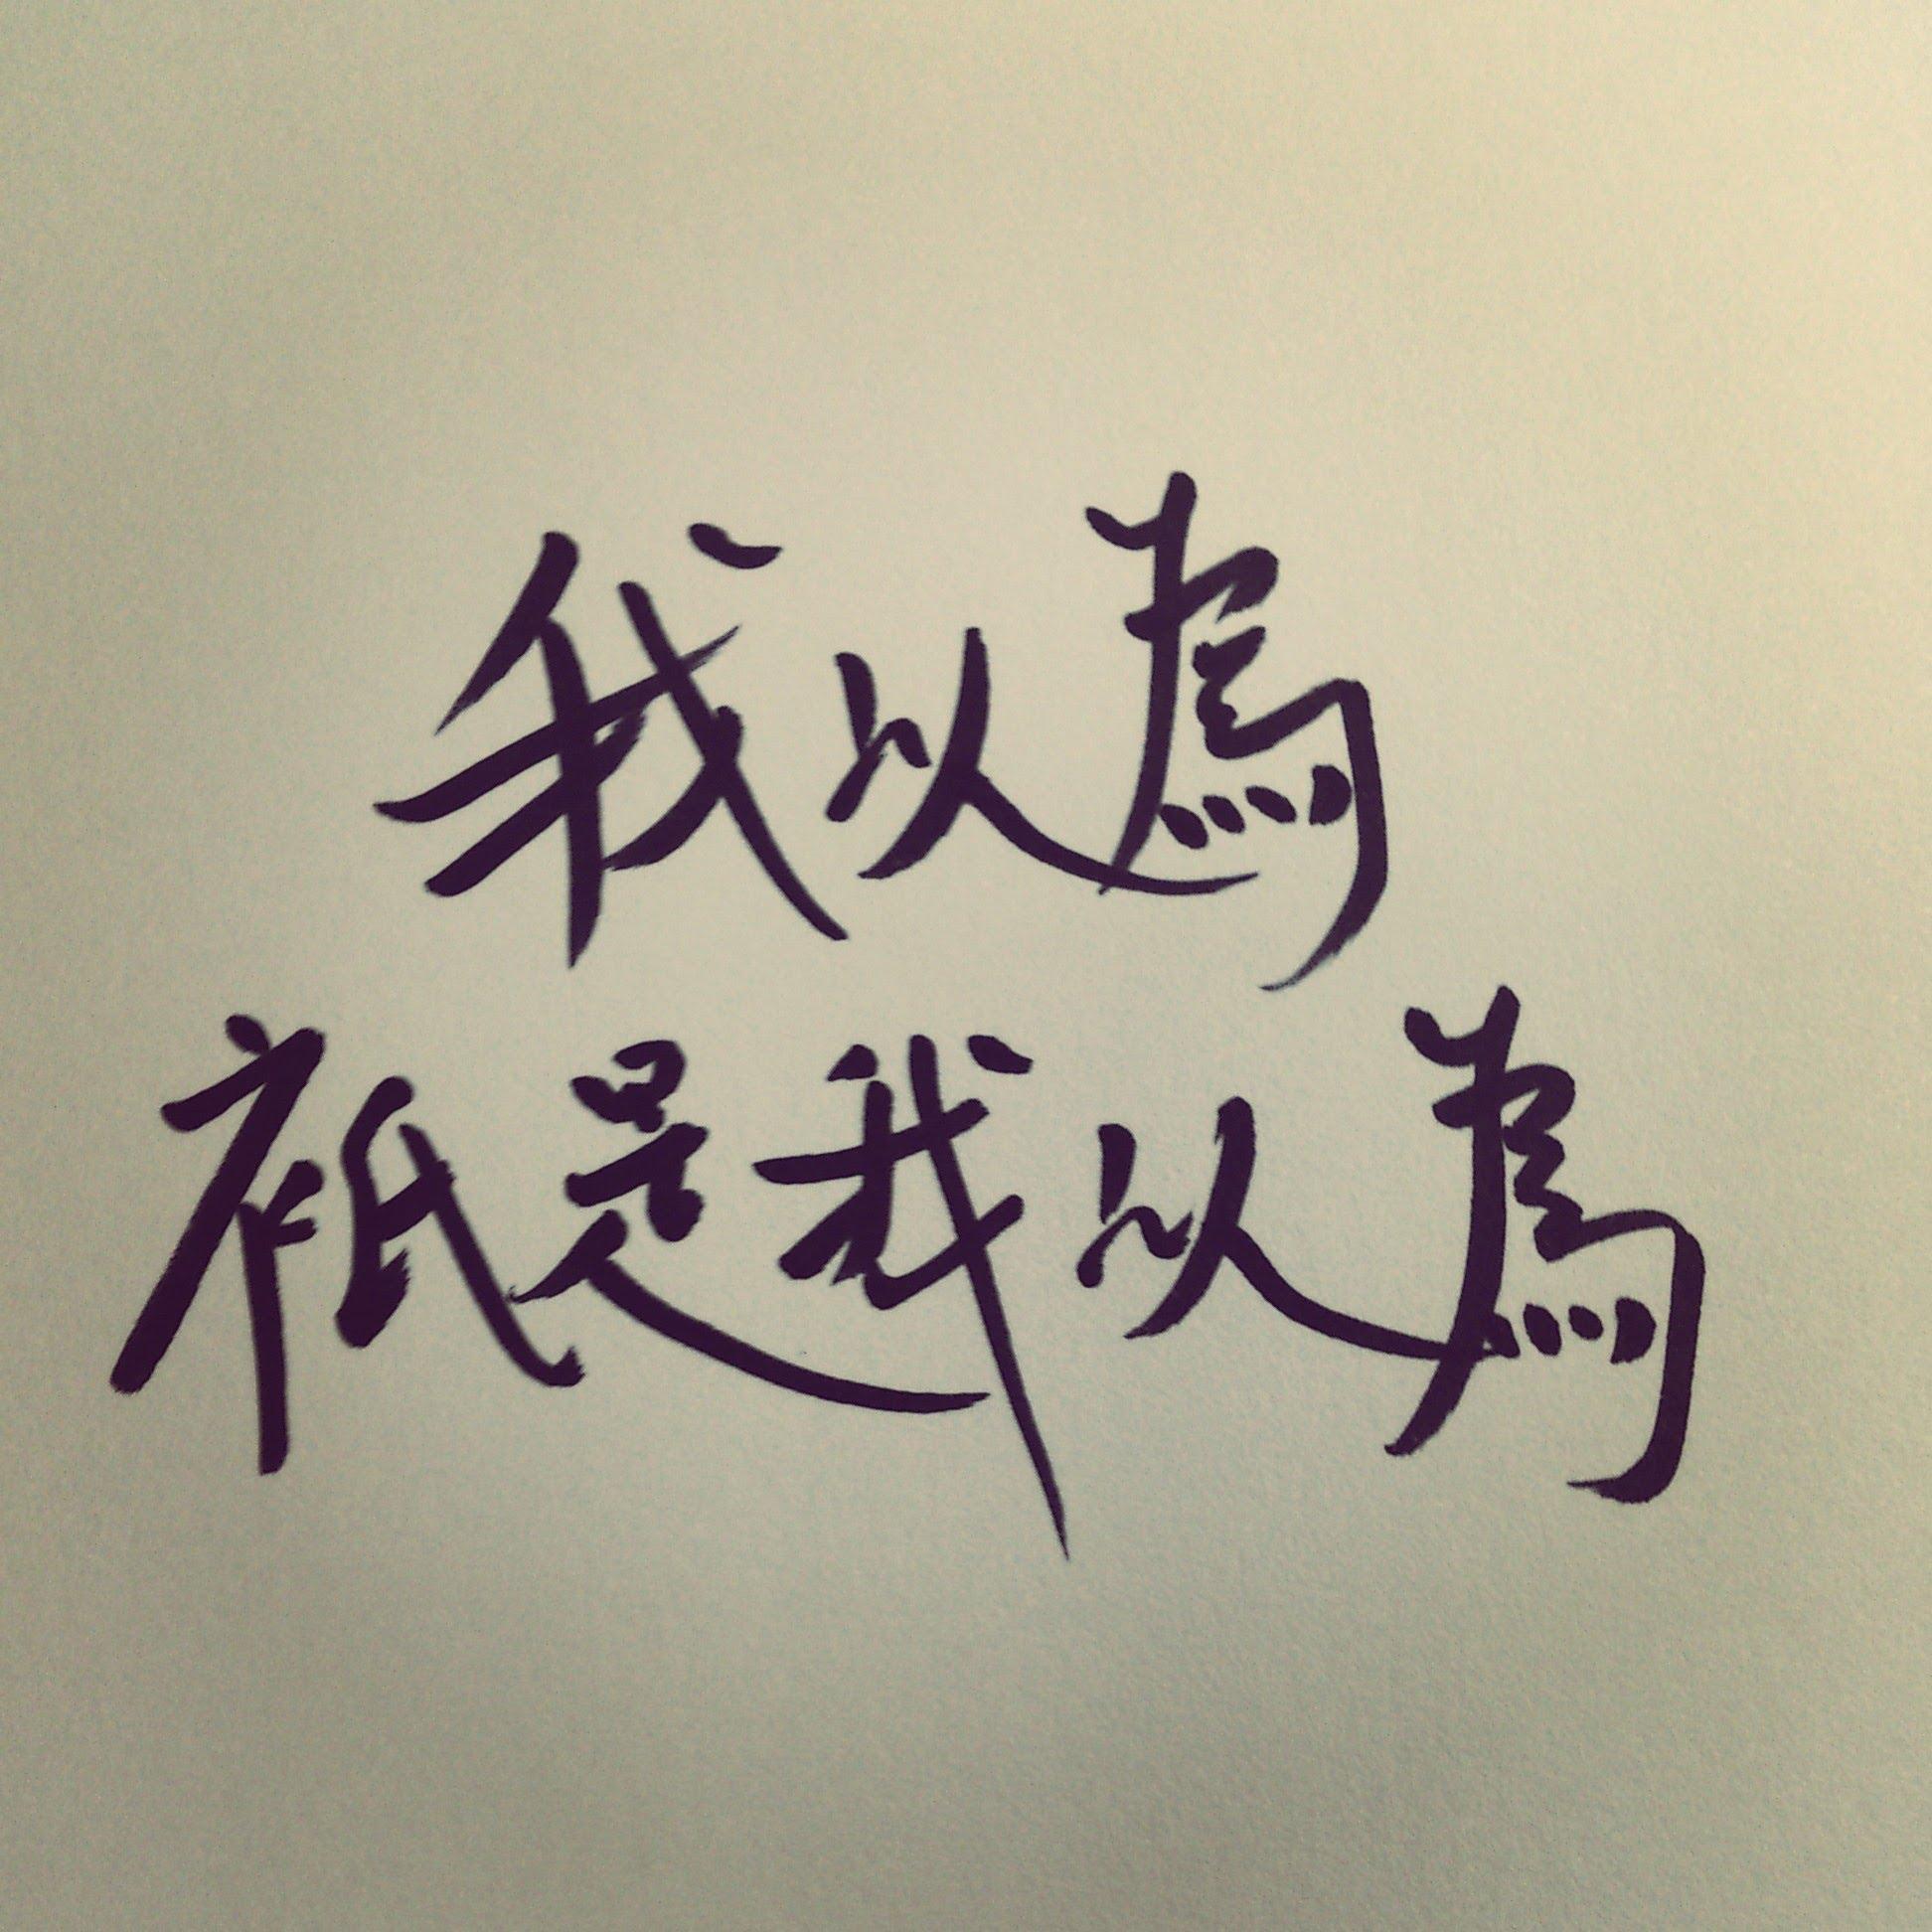 我以為
衹是我以為